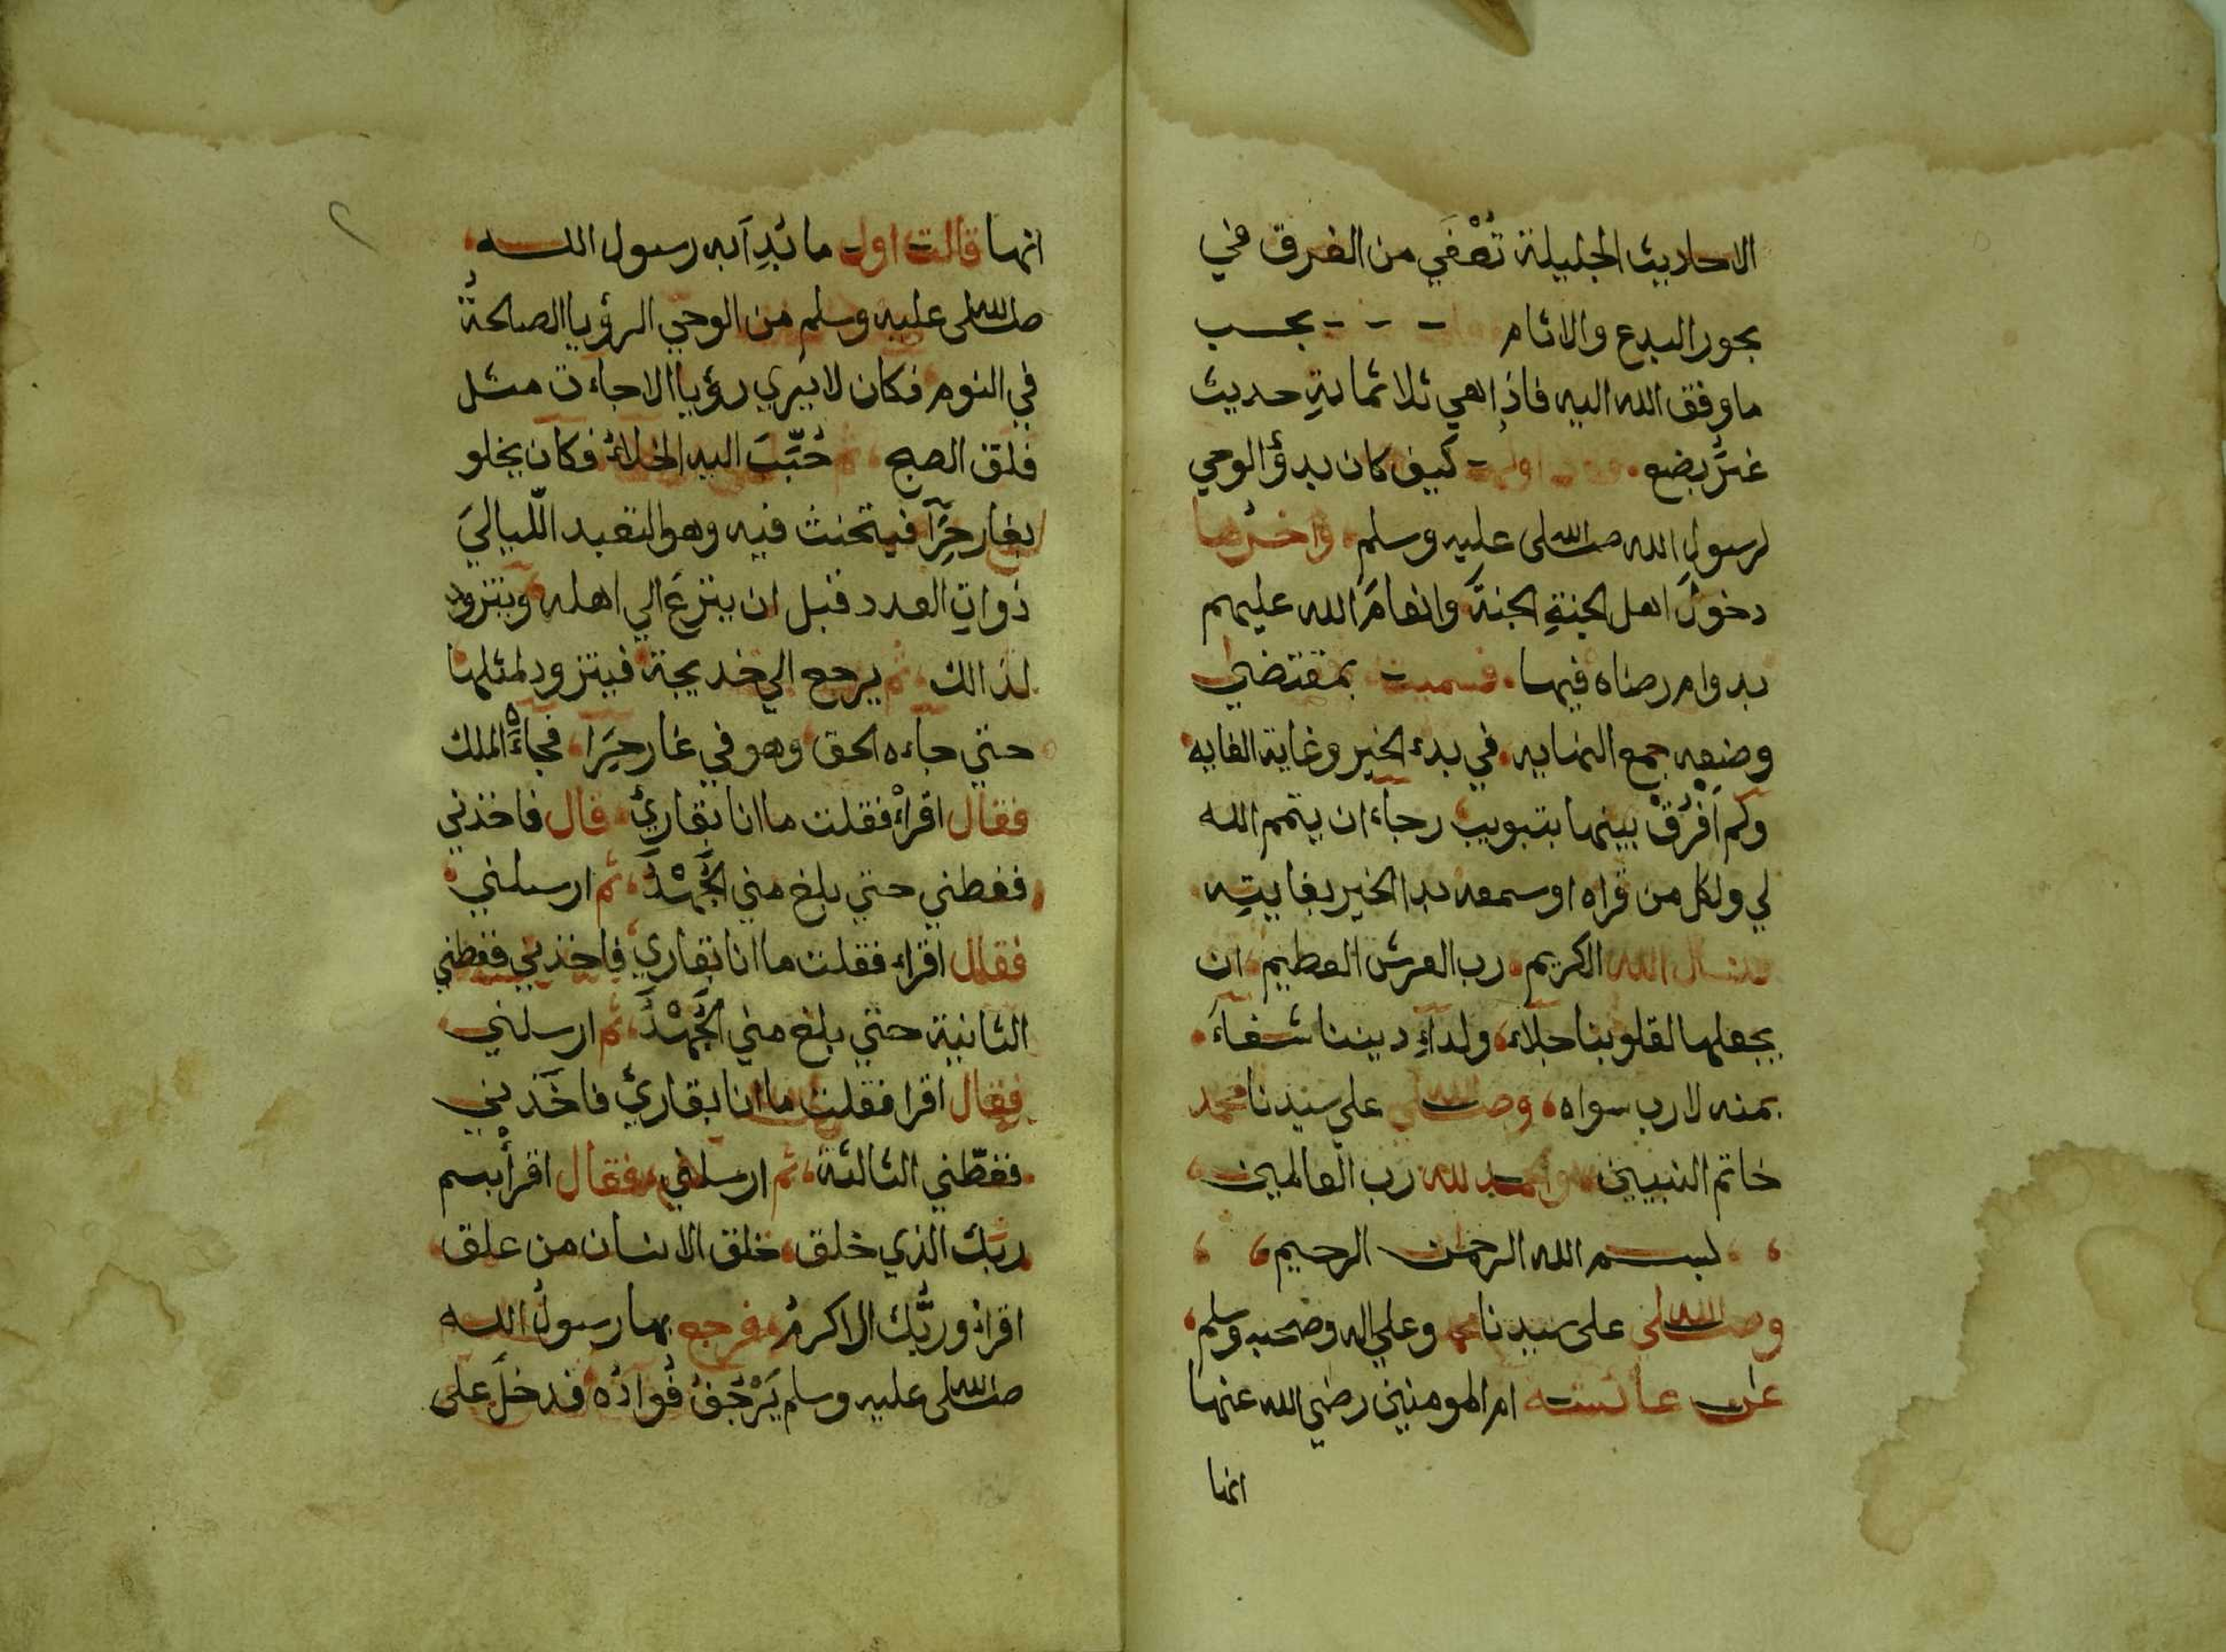 الاحاديث الجليلة تُعْفَي من الغرق في
بحور البدع والاثام بحسب
ما وفق الله اليه فاذا هي ثلاثمائةِ حديث
غيرَ بضع اولها كيف كان بدؤ الوحي
لرسولِ الله صلى الله عليه وسلم واخرها
دخولُ اهل الجنةِ الجنةَ وانعامُ الله عليهم
بدوام رضاه فيها فسميته بمقتضي
وضعِه جمع النهايه في بدء الخير وغاية الغايه
ولم اُفَرِّقْ بينها بتبويب رجاء ان يتمم الله
لي ولكل من قراه او سمعه بدا الخير بغايتِه
فنسال الله الكريم رب العرش العظيم ان
يجعلها لقلوبنا جلاء ولداءِ ديننا شفاءَ
بمنه لا رب سواه وصلى الله علي سيدنا محمد
خاتم النبيين والحمد لله رب العالمين
بسم الله الرحمن الرحيم
وصلى الله على سيدنا محمد وعلي اله وصحبه وسلم
عن عائشه ام المومنين رضي الله عنها
انها
انها قالت اول ما بُدِاَ به رسول الله
صلى الله عليه وسلم من الوحي الرؤيا الصالحةُ
في النوم فكان لا يَري رؤيا الا جاءت مثل
فلق الصبح ثم حُبِّبَ اليه الخلاءُ فكان يخلو
بغار حِرَآ فيتحنث فيه وهو التعبد اللّياليَ
ذواتِ العدد قبل ان ينزعَ الي اهله ويتزود
لذالك ثم يرجع الي خديجة فيتزود لمثلها
حتي جاءه الحق وهو في غار حِرَا فجاءَهُ الملك
فقال اقراْ فقلت ما انا بقارئٍ قال فاخذني
فغطني حتي بلغ مني الجُهْدَ ثم ارسلني
فقال اقراء فقلت ما انا بقارئ فاخذني فغطني
الثانية حتي بلغ مني الجُهْدَ ثم ارسلني
فقال اقرا فقلت ما انا بقارئ فاخَذني
فغطّني الثالثة ثم ارسلني فقال اقرأْ بسم
ربك الذي خلق خلق الانسان من علق
اقراْ وربُّك الاكرمُ فرجع بها رسولُ الله
صلى الله عليه وسلم يَرْجُفُ فُوادُه فدخلَ على